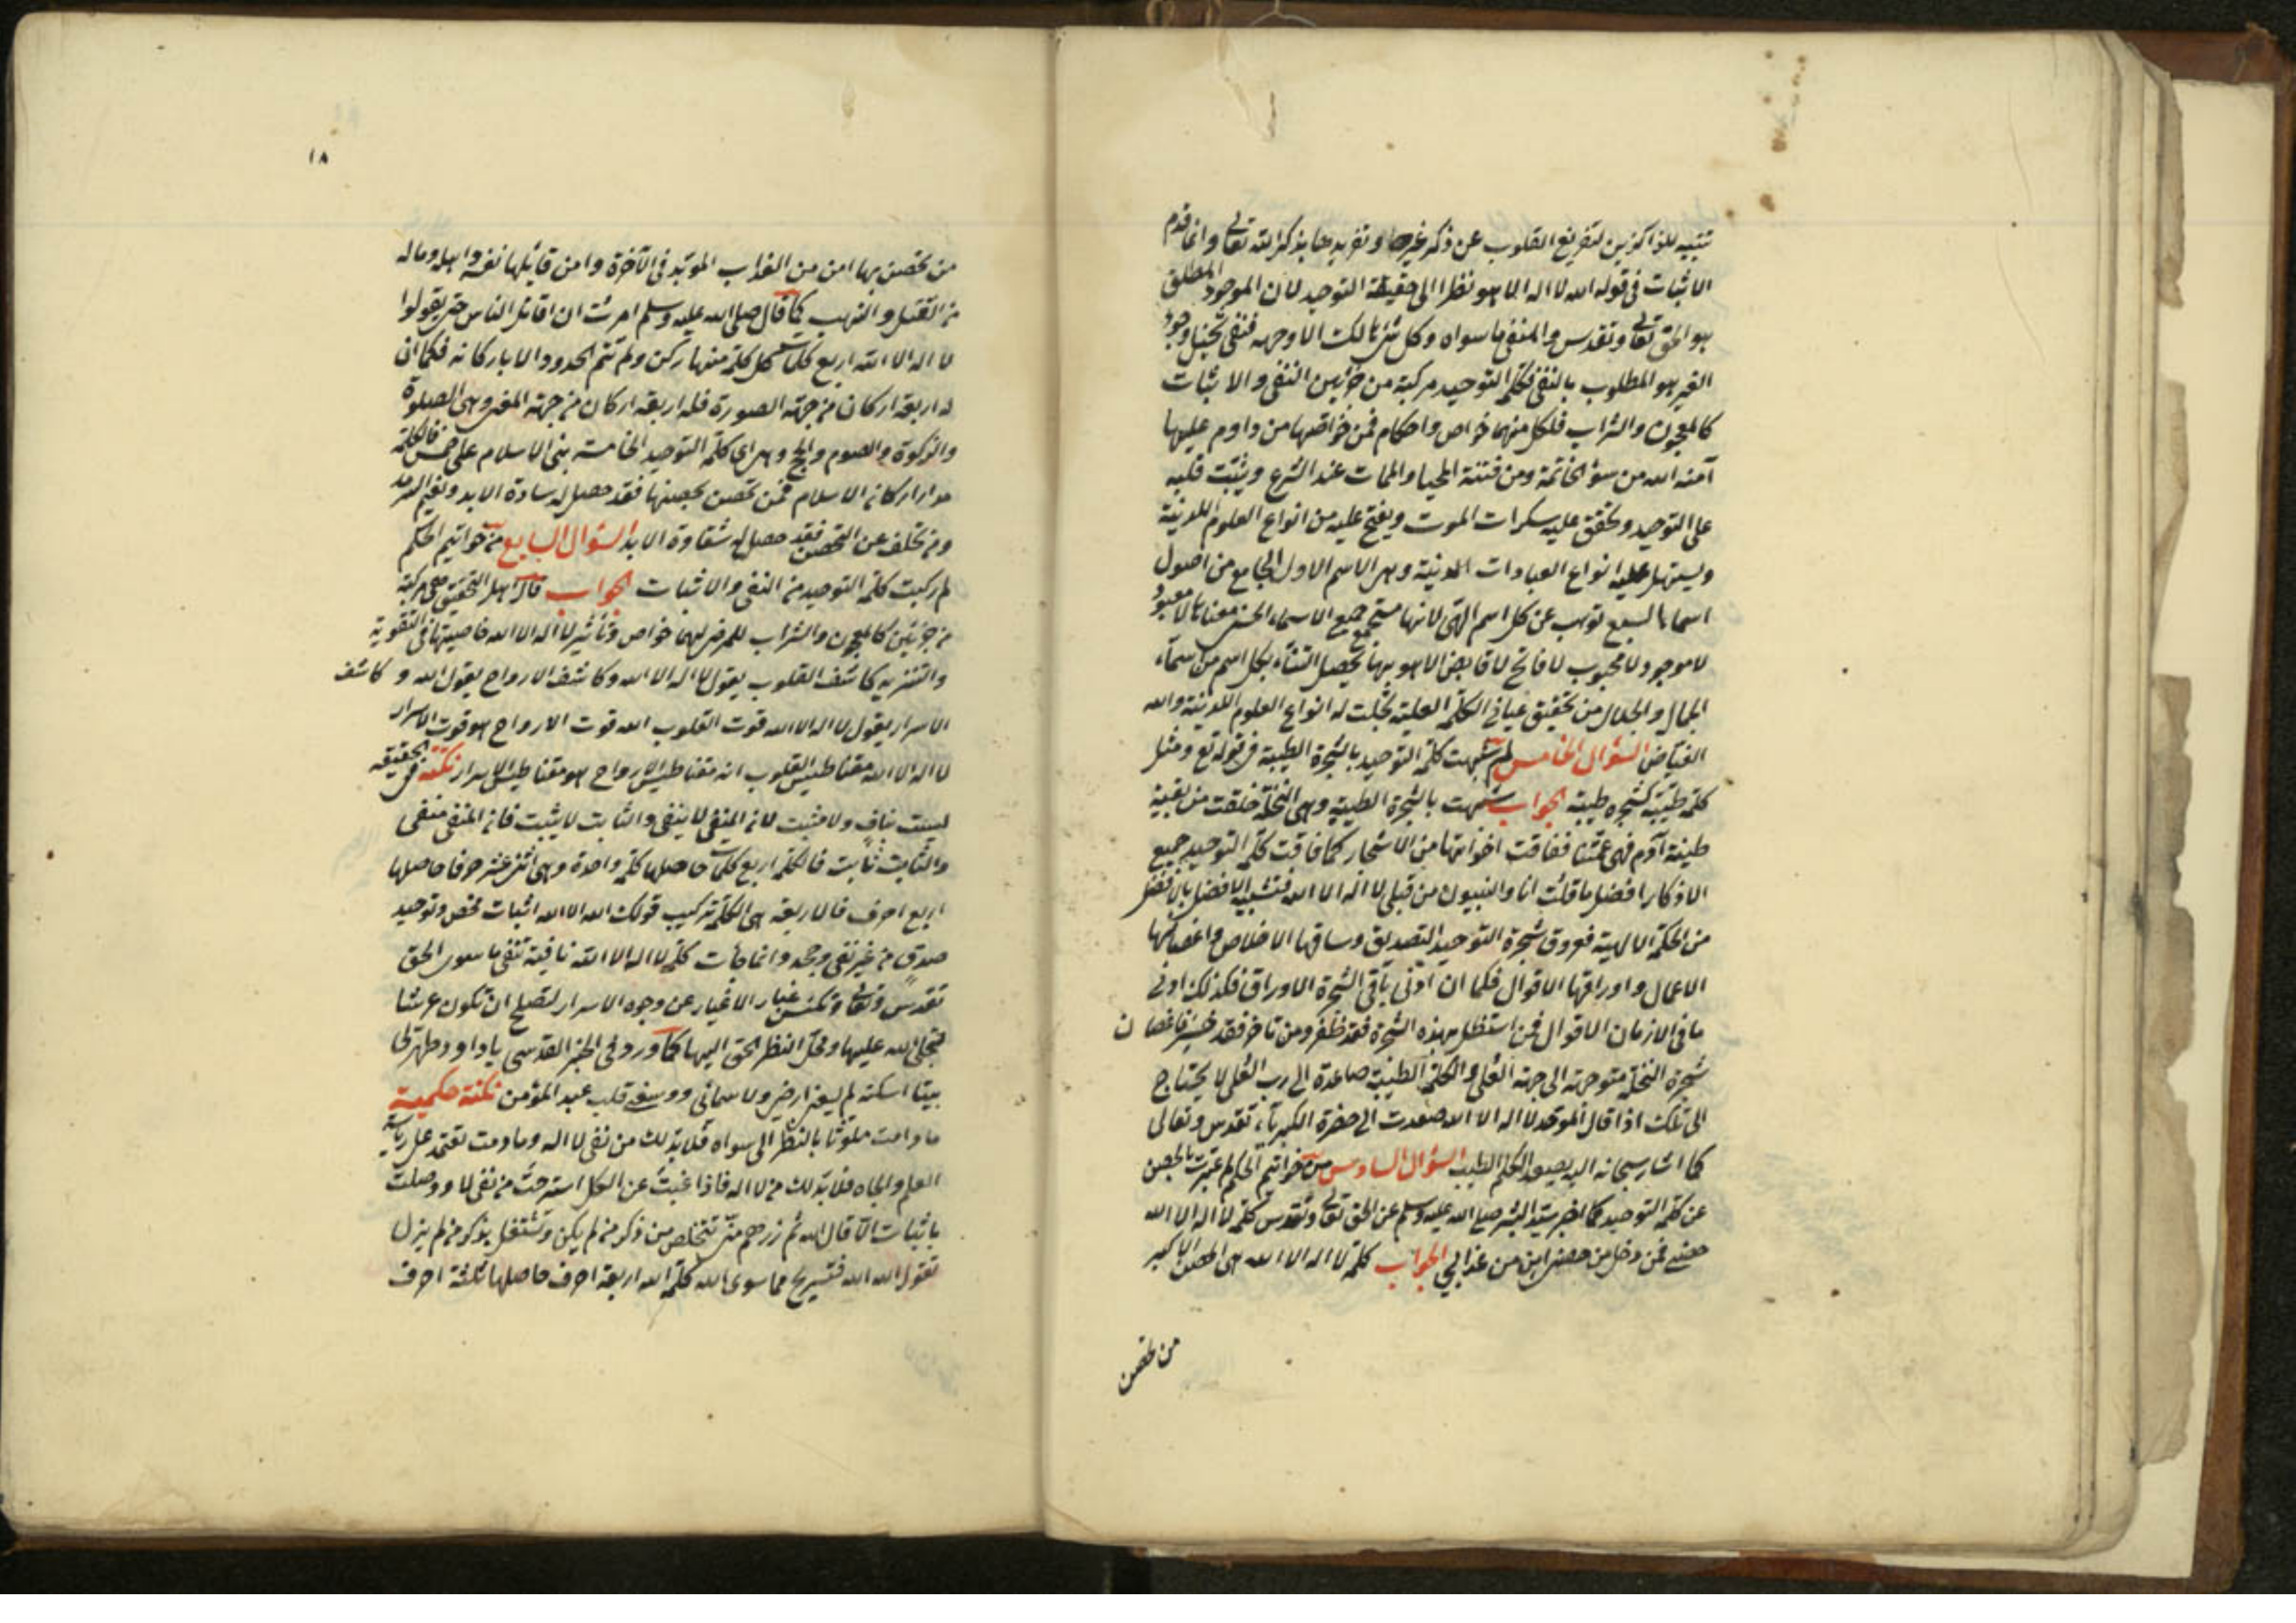 تنبيه للذاكرين لتفريغ القلوب عن ذكر غيره وتفريدها بذكر الله تعالى وانما قدم
الاثبات في قوله الله لا اله الا هو نظرا الى حقيقة التوحيد لان الموجود المطلق
هو الحق تعالى وتقدس والمنفى ما سواه وكل شئ هالك الا وجهه فنفى تخيل وجود
الغير هو المطلوب بالنفى فكلمة التوحيد مركبة من جزئين النفى والاثبات
كالمعجون والشراب فلكل منهما خواص واحكام فمن خواصها من داوم عليها
آمنه الله من سوء الخاتمة ومن فتنة المحيا والممات عند النزع ويثبت قلبه
على التوحيد ويخفف عليه سكرات الموت ويفتح عليه من انواع العلوم اللدنية
ويسهل عليه انواع العبادات البدنية وهي الاسم الاول الجامع من اصول
اسماء السبع تنوب عن كل اسم الهى لانها مستجمع جميع الاسماء الحسنى معناها لا معبود
لا موجود لا محبوب لا فاتح لا قابض الا هو بها يحصل الثناء بكل اسم من اسماء
الجمال والجلال من تحقيق معانى الكلمة العلية تجلت له انواع العلوم اللدنية والله
الفياض السؤال الخامس لم شبهت كلمة التوحيد بالشجرة الطيبة في قوله تع ومثل
كلمة طيبة كشجرة طيبة الجواب شبهت بالشجرة الطيبة وهى النخلة خلقت من بقية
طينة آدم فهى عمتنا ففاقت اخواتها من الاشجار كما فاقت كلمة التوحيد جميع
الاذكار افضل ما قلت انا والنبيون من قبلى لا اله الا الله فتشبيه الافضل بالافضل
من الحكمة الالهية فعروق شجرة التوحيد التصديق وساقها الاخلاص واغصانها
الاعمال واوراقها الاقوال فكما ان ادنى باقى الشجرة الاوراق فكذلك ادنى
ما فى الازمان الاقوال فمن استظل بهذه الشجرة فقد ظفر ومن تاخر فقد خسر فاغصان
شجرة النخلة متوجهة الى جهة العلى والكلمة الطيبة صاعدة الى رب العلى لا يحتاج
الى تلك اذا قال الموحد لا اله الا الله صعدت الى حضرة الكبرياء تقدس وتعالى
كما اشار سبحانه اليه يصعد الكلم الطيب السؤال السادس من خواتيم الحكم لم عبرت بالحصن
عن كلمة التوحيد كما اخبر سيد البشر صلى الله عليه وسلم عن الحق تعالى وتقدس كلمة لا اله الا الله
حصنى فمن دخل من حصنى امن من عذابي الجواب كلمة لا اله الا الله هى الحصن الاكبر
من تحصن
١٨
من تحصن بها امن من العذاب الموبد فى الآخرة وامن قايلها نفسه واهله وماله
من القتل والنهب كما قال صلى الله عليه وسلم امرت ان اقاتل الناس حتى يقولوا
لا اله الا الله اربع كلمات كل كلمة منها ركن ولم تتم الحدود الا باركانه فكما ان
له اربعة اركان من جهة الصورة فله اربعة اركان من جهة المعنى وهى الصلوة
والزكوة والصوم والحج وهى اى كلمة التوحيد الخامسة بنى الاسلام على خمس فالكلمة
مدار اركان الاسلام فمن تحصن بحصنها فقد حصل له سعادة الابد ونعيم السرمد
ومن تخلف عن التحصن فقد حصل له شقاوة الابد السؤال السابع من خواتيم الحكم
لم ركبت كلمة التوحيد من النفى والاثبات الجواب قال اهل التحقيق هى مركبة
من جزئين كالمعجون والشراب للمرض لهما خواص وتأثير لا اله الا الله خاصيتها فى التقوية
والتنزيه كاشف القلوب يقول لا اله الا الله وكاشف الارواح يقول الله وكاشف
الاسرار يقول لا اله الا الله قوت القلوب الله قوت الارواح هو قوت الاسرار
لا اله الا الله مقناطيس القلوب الله مقناطيس الارواح هو مقناطيس الاسرار نكتة فى الحقيقة
ليست بناف ولا مثبت لان المنفى لا ينفى والثابت لا يثبت فان المنفى منفى
والثابت ثابت فالكلمة اربع كلمات حاصلها كلمة واحدة وهى اثنى عشر حرفا حاصلها
اربع احرف فالاربعة هى الكلمة تركيب قولك الله الا الله اثبات محض وتوحيد
صدق من غير نفى وجحد وانما جاءت كلمة لا اله الا الله نافية تنفى ما سوى الحق
تقدس وتعالى وتكنس غبار الاغيار عن وجوه الاسرار لتصلح ان تكون عرشا
لتجلى الله عليها ومحل النظر الحق اليها كما ورد فى الخبر القدسى يا داود طهر لى
بيتا اسكنه لم يسعنى ارضى ولا سمائى ووسعنى قلب عبد المؤمن نكتة حكمية
ما دامت ملوثا بالنظر الى سواه فلا بد لك من نفى لا اله وما دمت تعتمد على رياسة
العلم والجاه فلا بد لك من لا اله فاذا غبت عن الكل استرحت من نفى لا ووصلت
باثبات الا قال الله ثم ذرهم متى تتخلص من ذكر من لم يكن وتشتغل بذكر من لم يزل
تقول الله الله فتستريح مما سوى الله كلمة الله اربعة احرف حاصلها ثلثة احرف